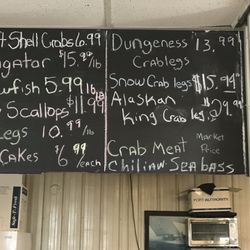 Shell Crabs 6.99
gator $15.99/lb
fish 5.99 lb
Scallops $11.99
Legs 10.99/lb
Cakes $6.99/each
Dungeness 13.99
Crablegs
Snow Crab legs $15.99
Alaskan
King Crab legs
Crab Meat Market Price
Chilian Seabass
PORT AUTHORITY